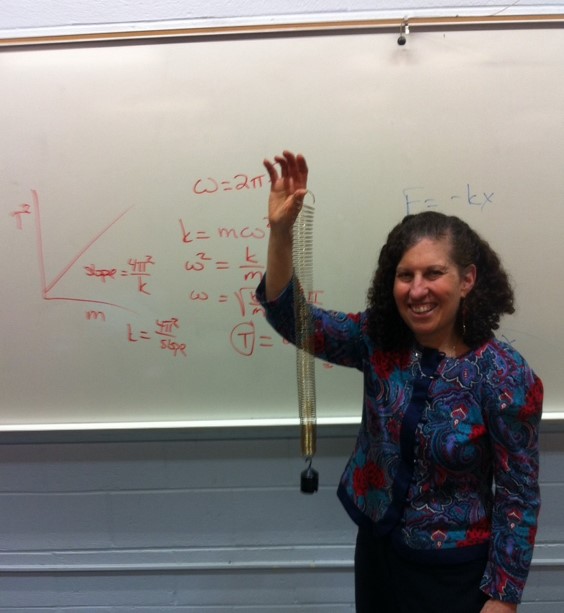 T²
m
slope = 4π²/k
k = 4π²/slope
ω = 2π
k = mω²
ω² = k/m
ω = √
T =
F = -kx